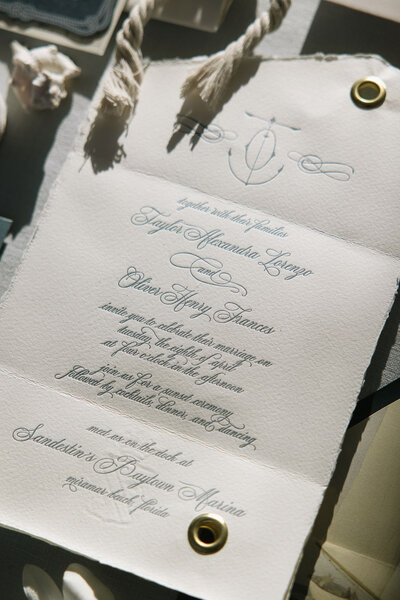 together with their families
Taylor Alexandra Lorenzo
and
Oliver Henry Frances
invite you to celebrate their marriage on
tuesday, the eighth of april
at five o'clock in the afternoon
join us for a sunset ceremony
followed by cocktails, dinner, and dancing
meet us on the dock at
Sandestin's Baytown Marina
miramar beach, florida